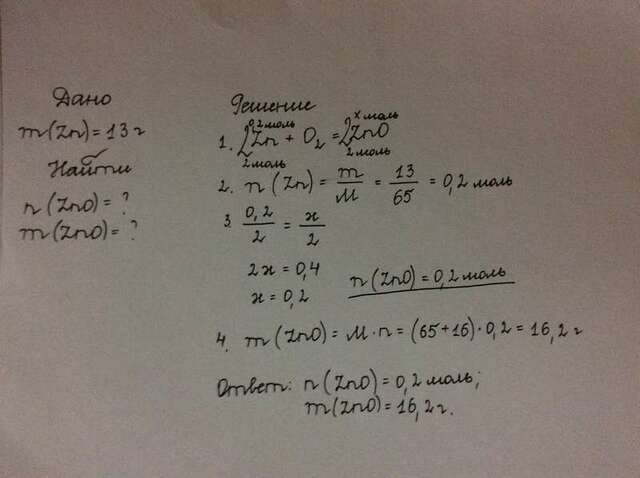 Дано
m(Zn) = 13 г
Найти
n(ZnO) = ?
m(ZnO) = ?
Решение
0,2 моль x моль
1. 2Zn + O₂ = 2ZnO
2 моль 2 моль
2. n(Zn) = m/M = 13/65 = 0,2 моль
3. 0,2/2 = x/2
2x = 0,4
x = 0,2 n(ZnO) = 0,2 моль
4. m(ZnO) = M · n = (65+16) · 0,2 = 16,2 г
Ответ: n(ZnO) = 0,2 моль;
m(ZnO) = 16,2 г.